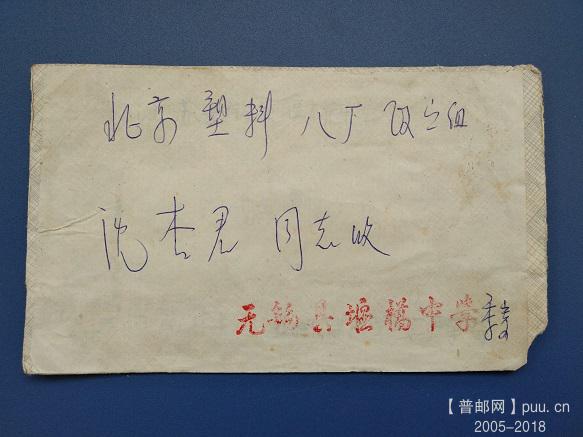 北京塑料八厂政工组
沈杏君同志收
无锡县堰桥中学
【普邮网】puu.cn
2005-2018